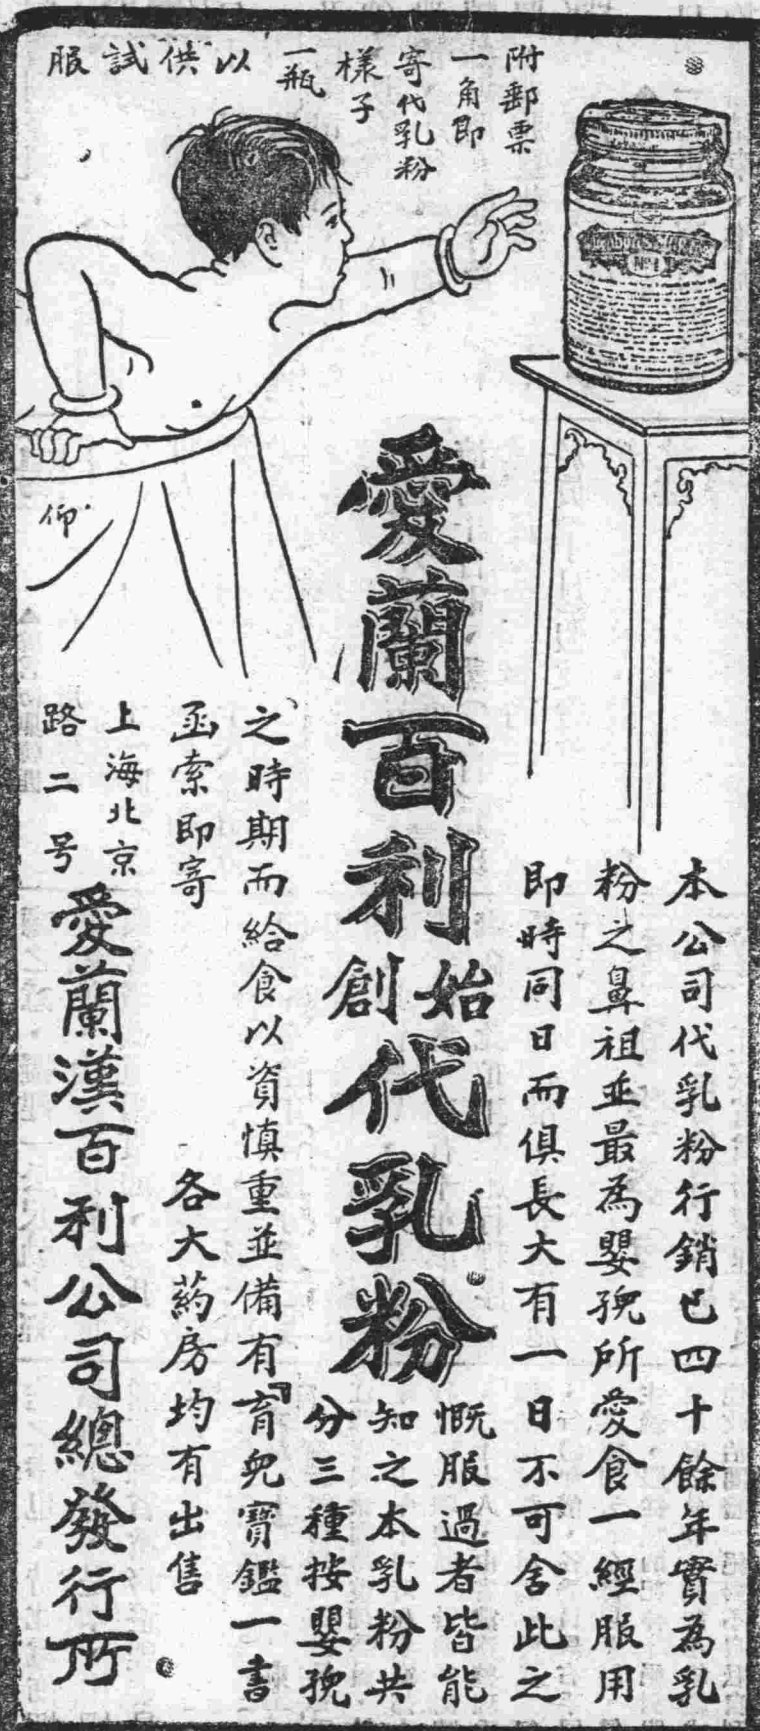 附郵票
一角即
寄代乳粉
樣子
一瓶
以供試服
Nº1
愛蘭百利
始創
代乳粉
本公司代乳粉行銷已四十餘年實為乳
粉之鼻祖並最為嬰孩所愛食一經服用
即時同日而俱長大有一日不可舍此之
慨服過者皆能
知之本乳粉共
分三種按嬰孩
之時期而給食以資慎重並備有『育兒寶鑑一書
函索即寄
各大葯房均有出售
上海北京
路二号
愛蘭漢百利公司總發行所
仰